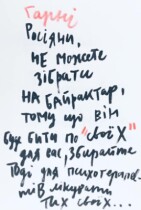 Гарні
Росіяни,
не можете
зібрати
на байрактар,
тому що він
буде бити по "своїх"
для вас, збирайте
тоді для психотерапев-
тів лікувати
тих своїх...